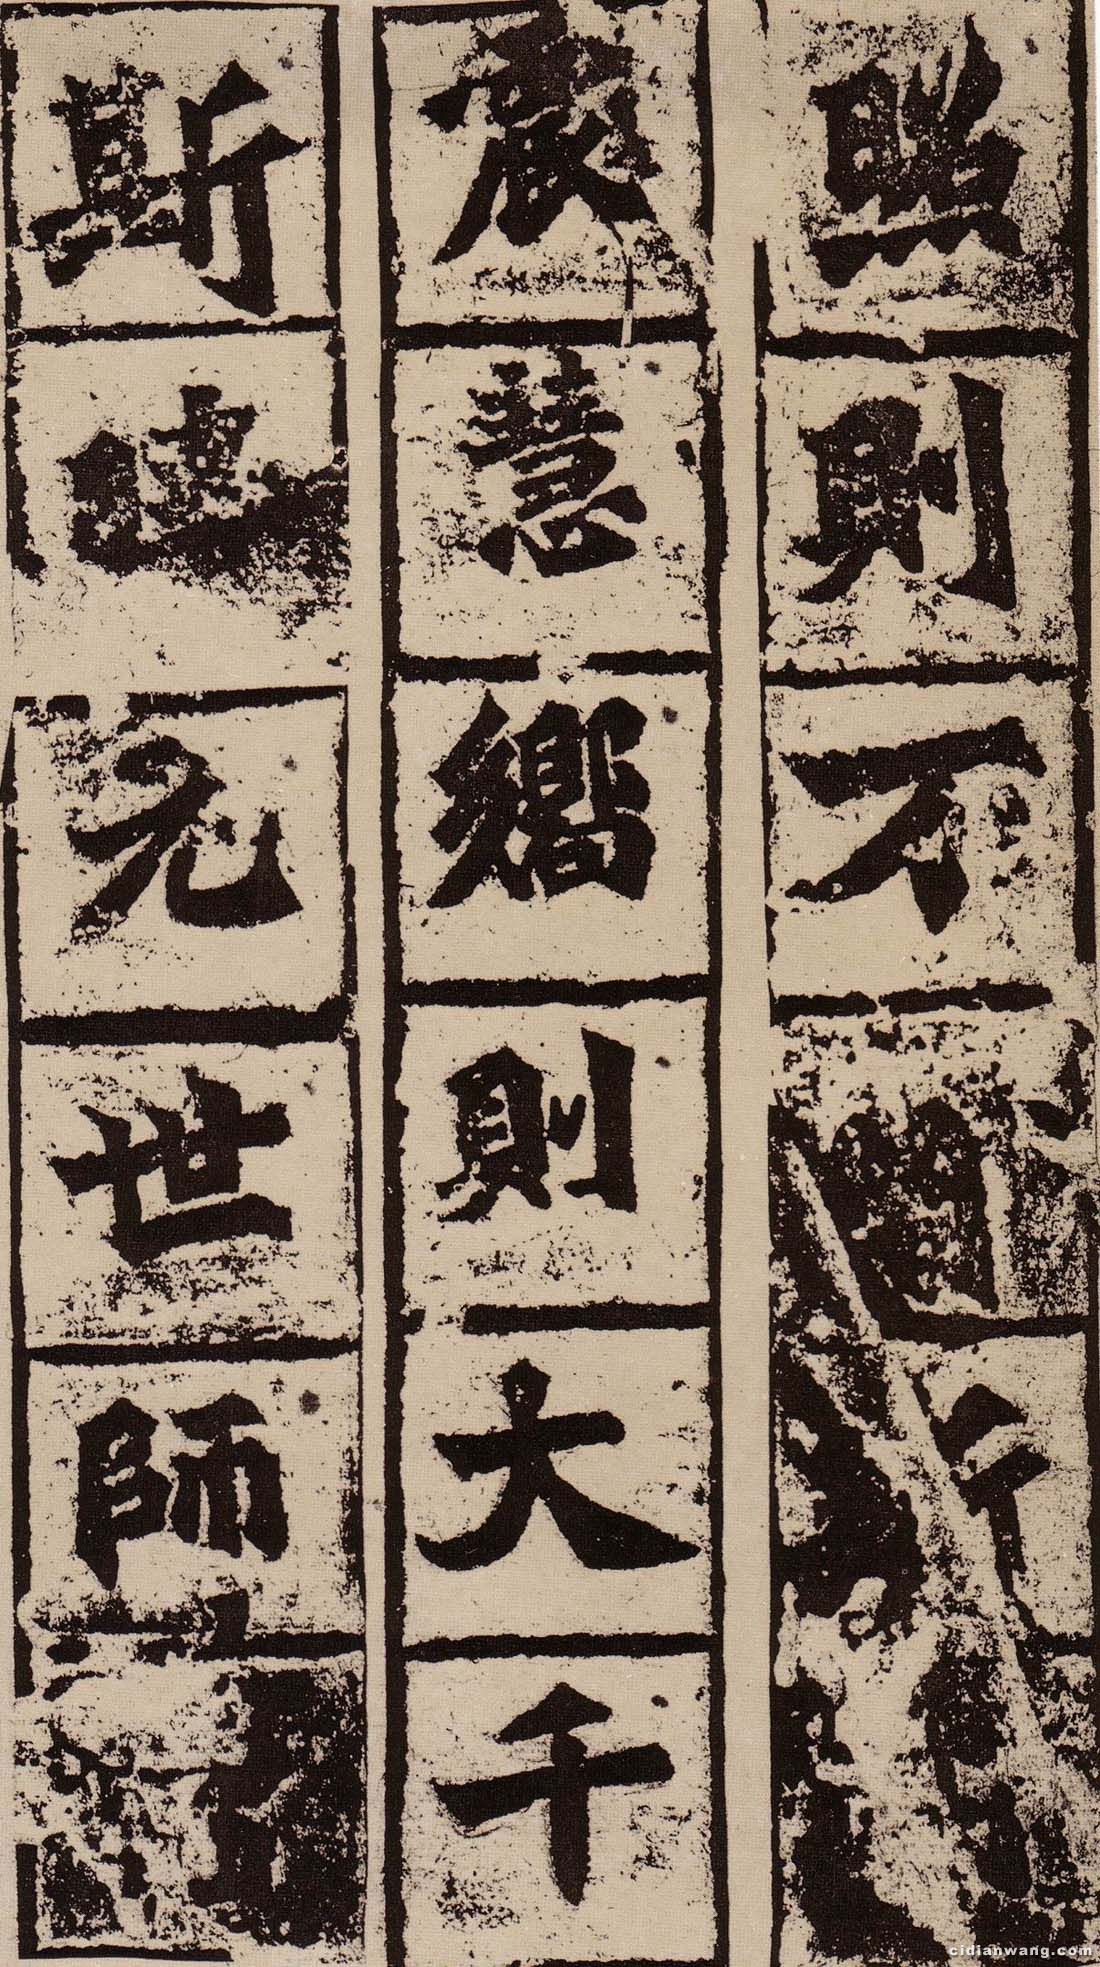 照則不斯
震慧嚮則大千
斯元世師
cidianwang.com